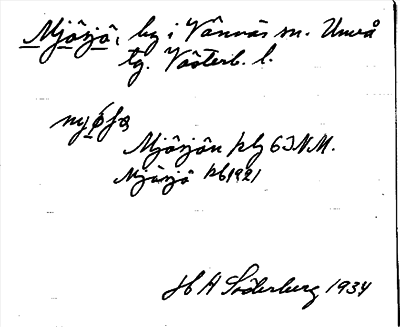 Mjösjö, by i Vännäs sn. Umeå
tg. Västerb. l.
Mjösjön kbg 6 INM.
Mjösjö kb 1921
H A Söderberg 1934